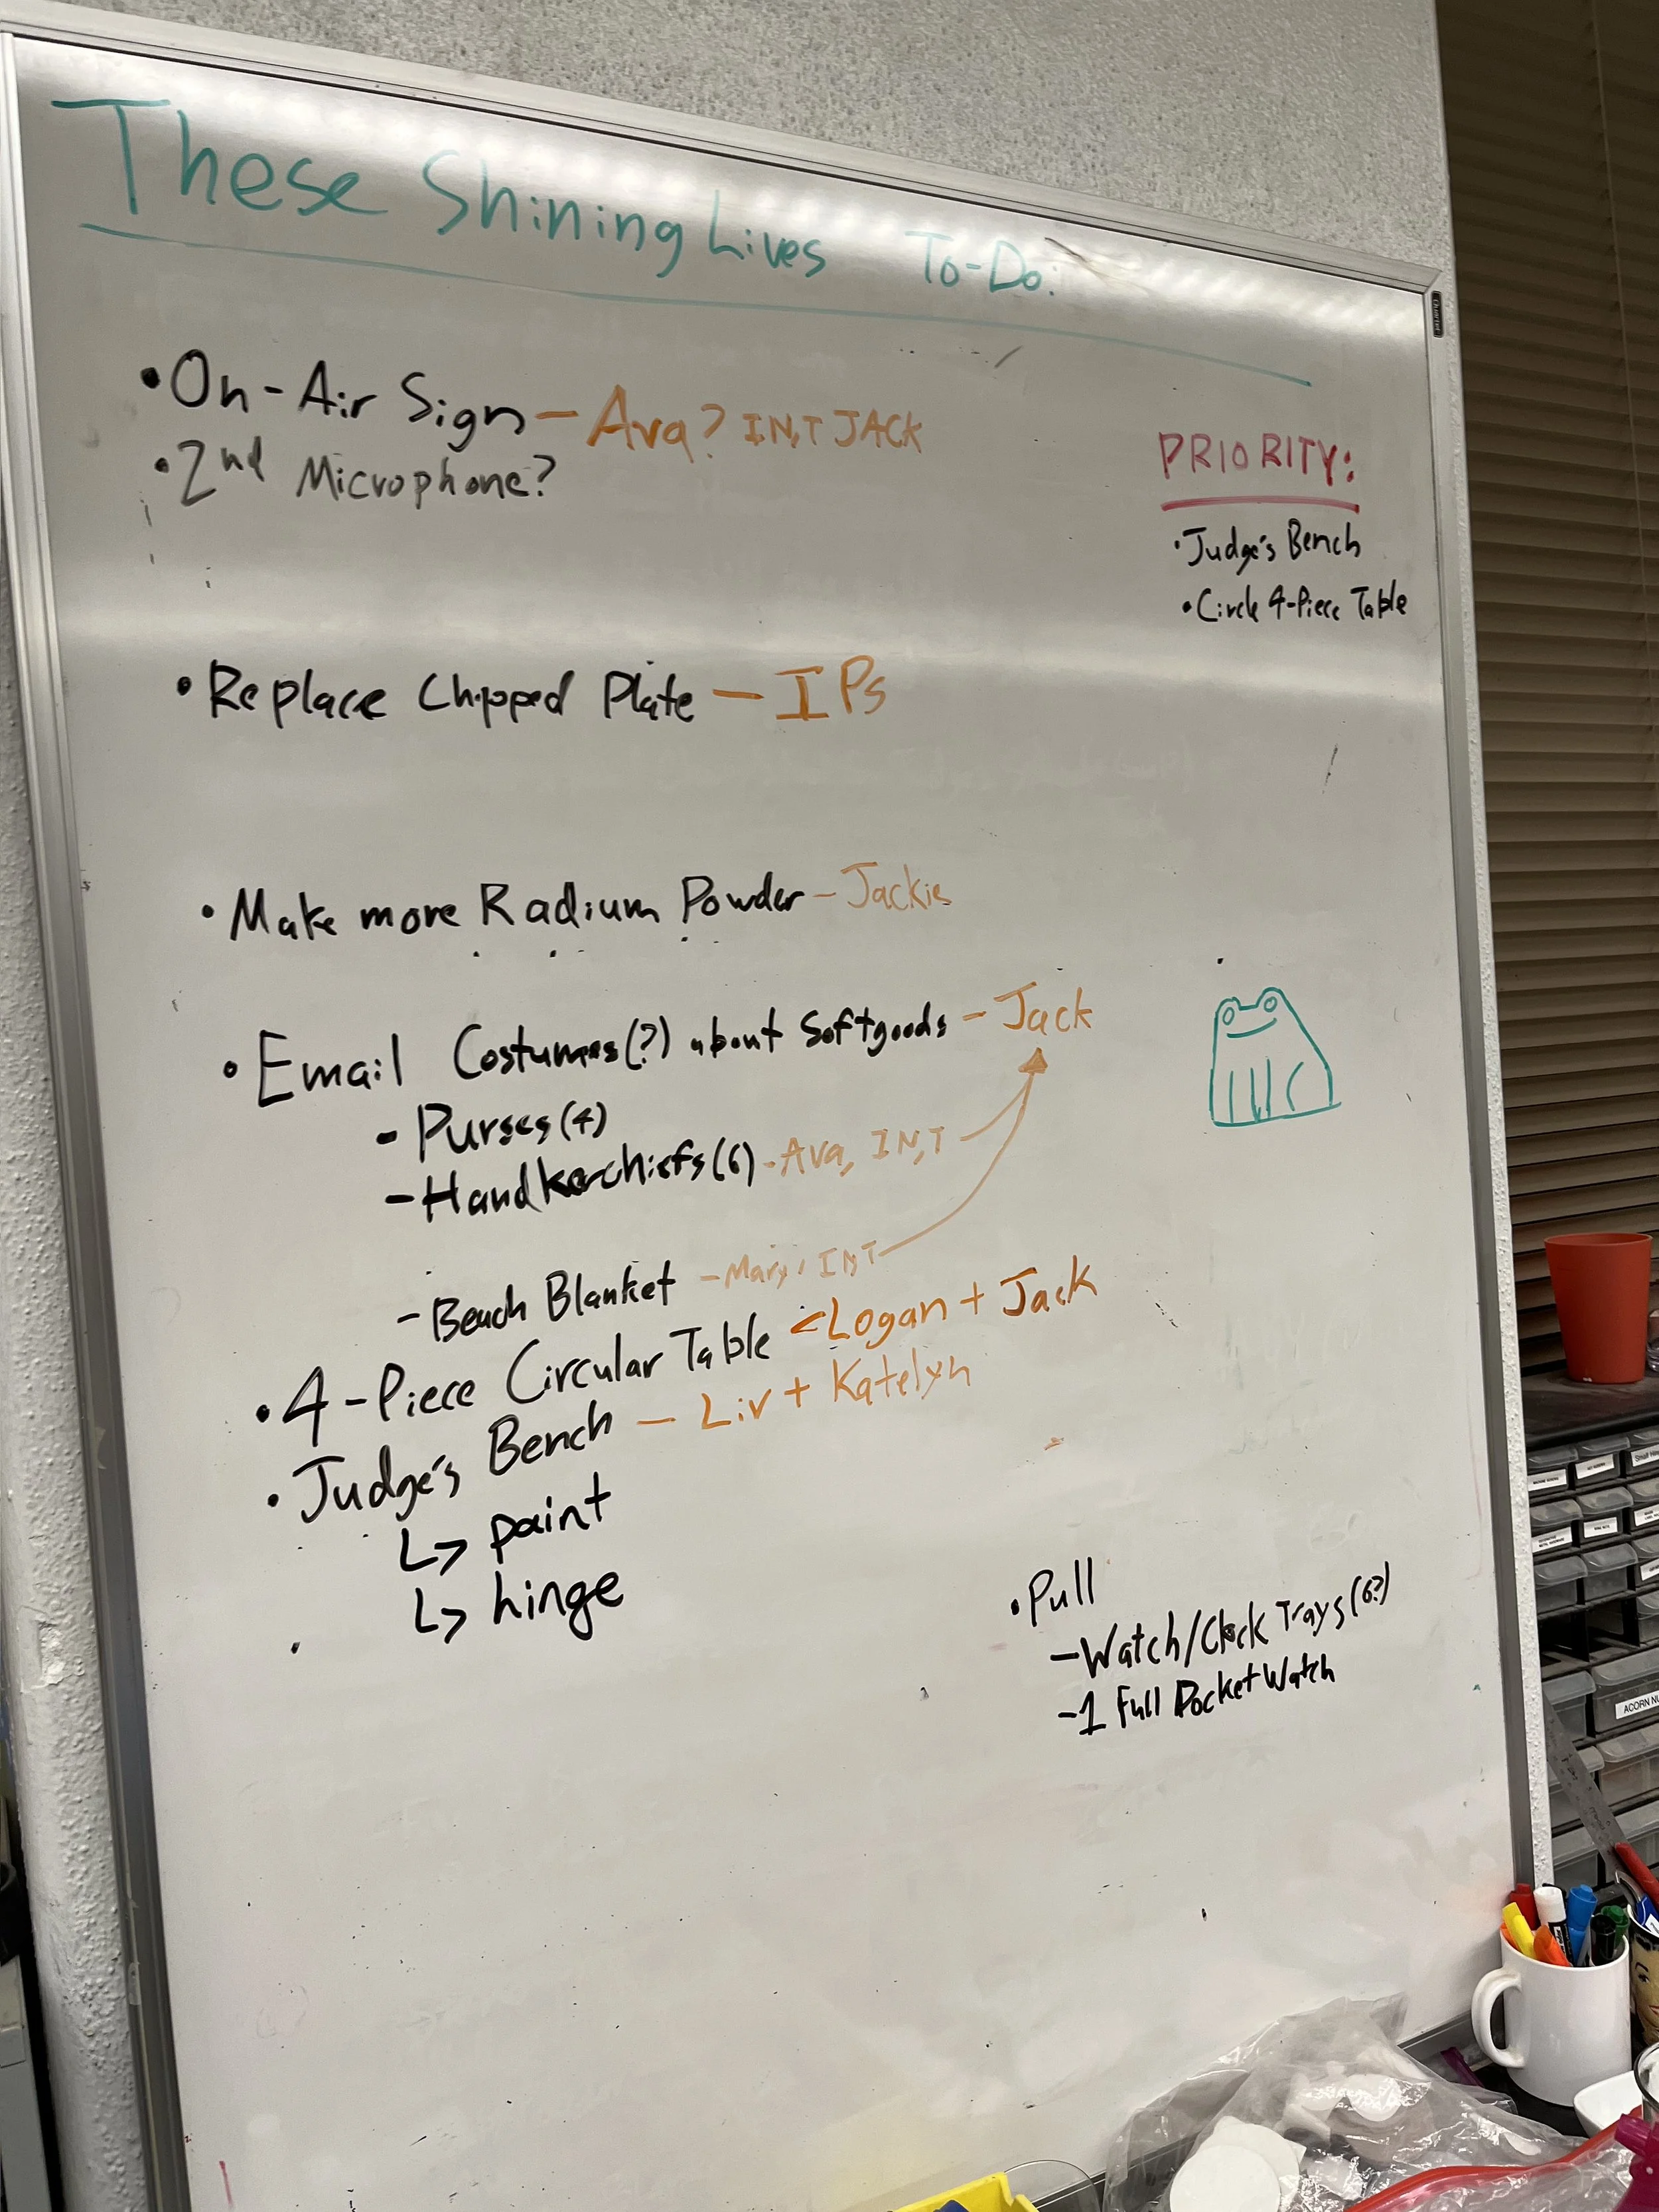 These Shining Lives To-Do:
• On-Air Sign - Ava? IN,T JACK
• 2nd Microphone?
PRIORITY:
• Judge's Bench
• Circle 4-Piece Table
• Replace Chipped Plate - IPs
• Make more Radium Powder - Jackie
• Email Costumes(?) about Softgoods - Jack
- Purses (4)
- Handkerchiefs (6) - Ava, IN,T
- Beach Blanket - Mary, IN,T
• 4-Piece Circular Table < Logan + Jack
• Judge's Bench - Liv + Katelyn
↳ paint
↳ hinge
• Pull
- Watch/Clock Trays (6?)
- 1 Full Pocket Watch
ACORN NU